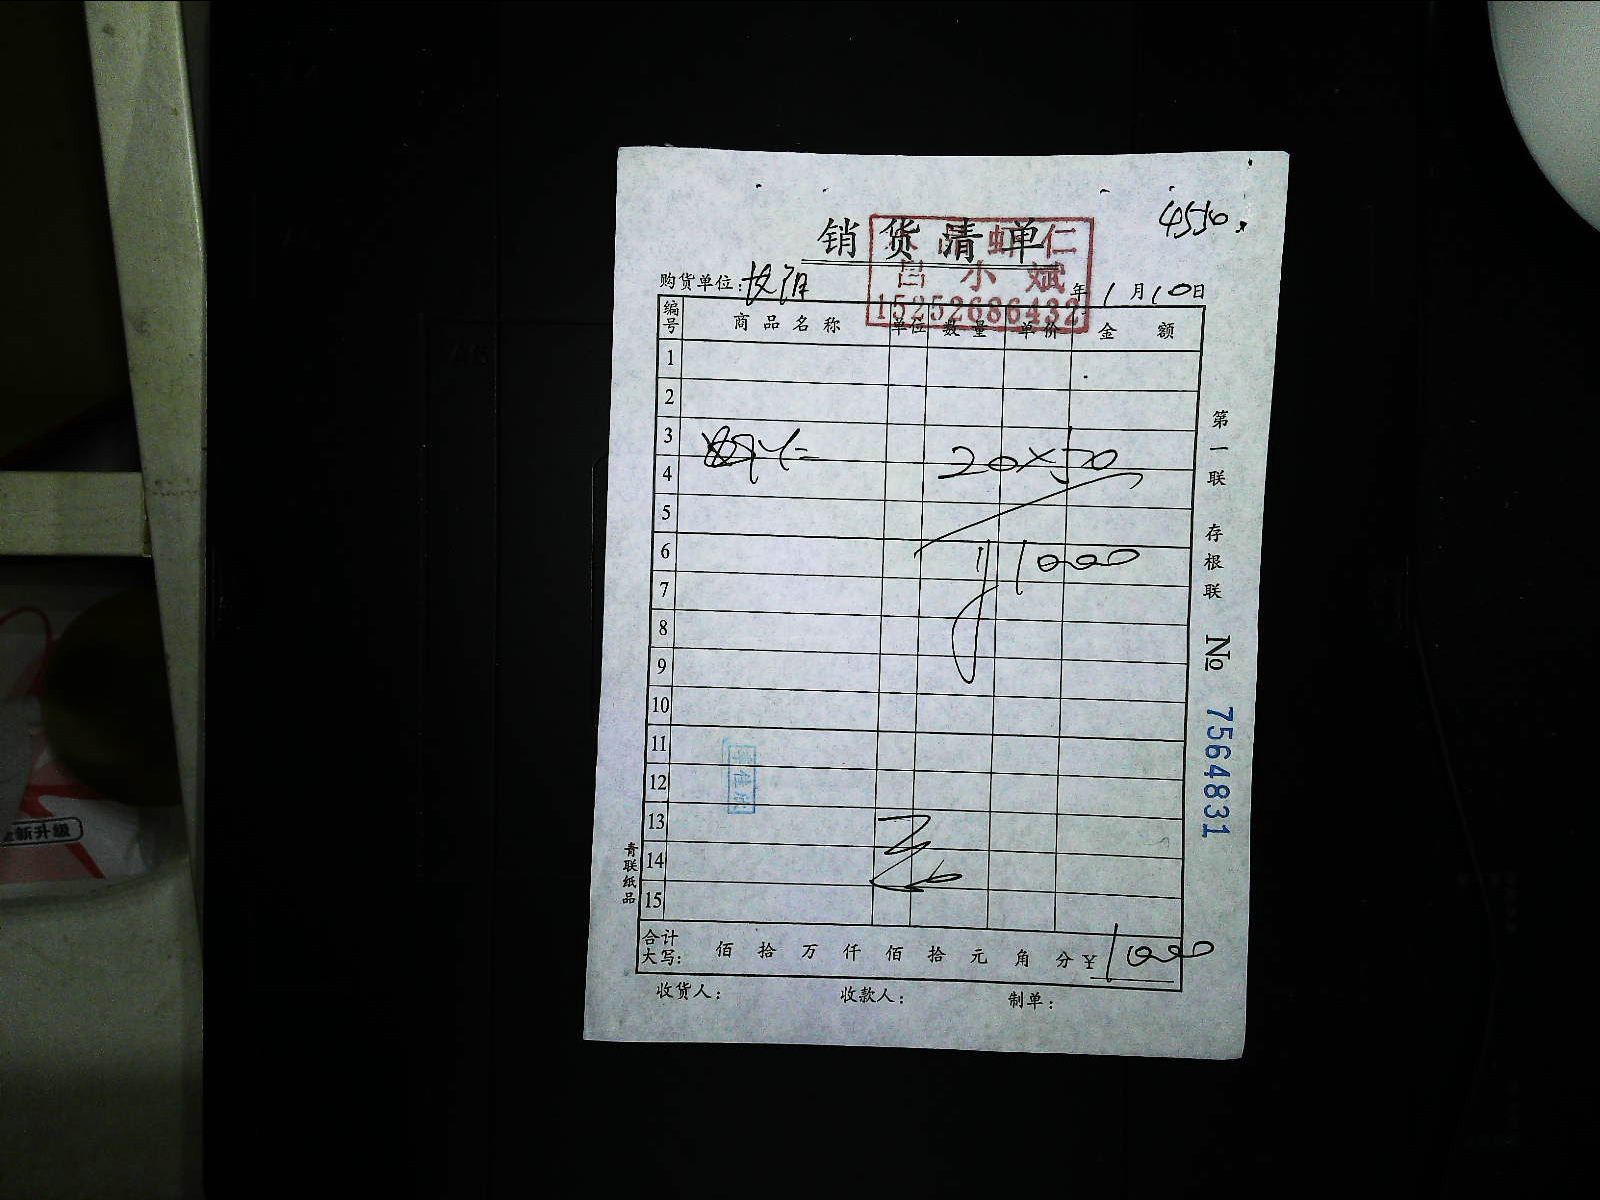 4550.
销货清单
虾仁
吕小斌
15252686432
购货单位:
年1月10日
编号 商品名称 单位 数量 单价 金额
1
2
3
20×50
4
5
6
1000
7
8
9
10
11
12
13
14
15
合计
大写: 佰拾万仟佰拾元角分¥1000
收货人: 收款人: 制单:
第一联 存根联 No 7564831
青联纸品
新升级